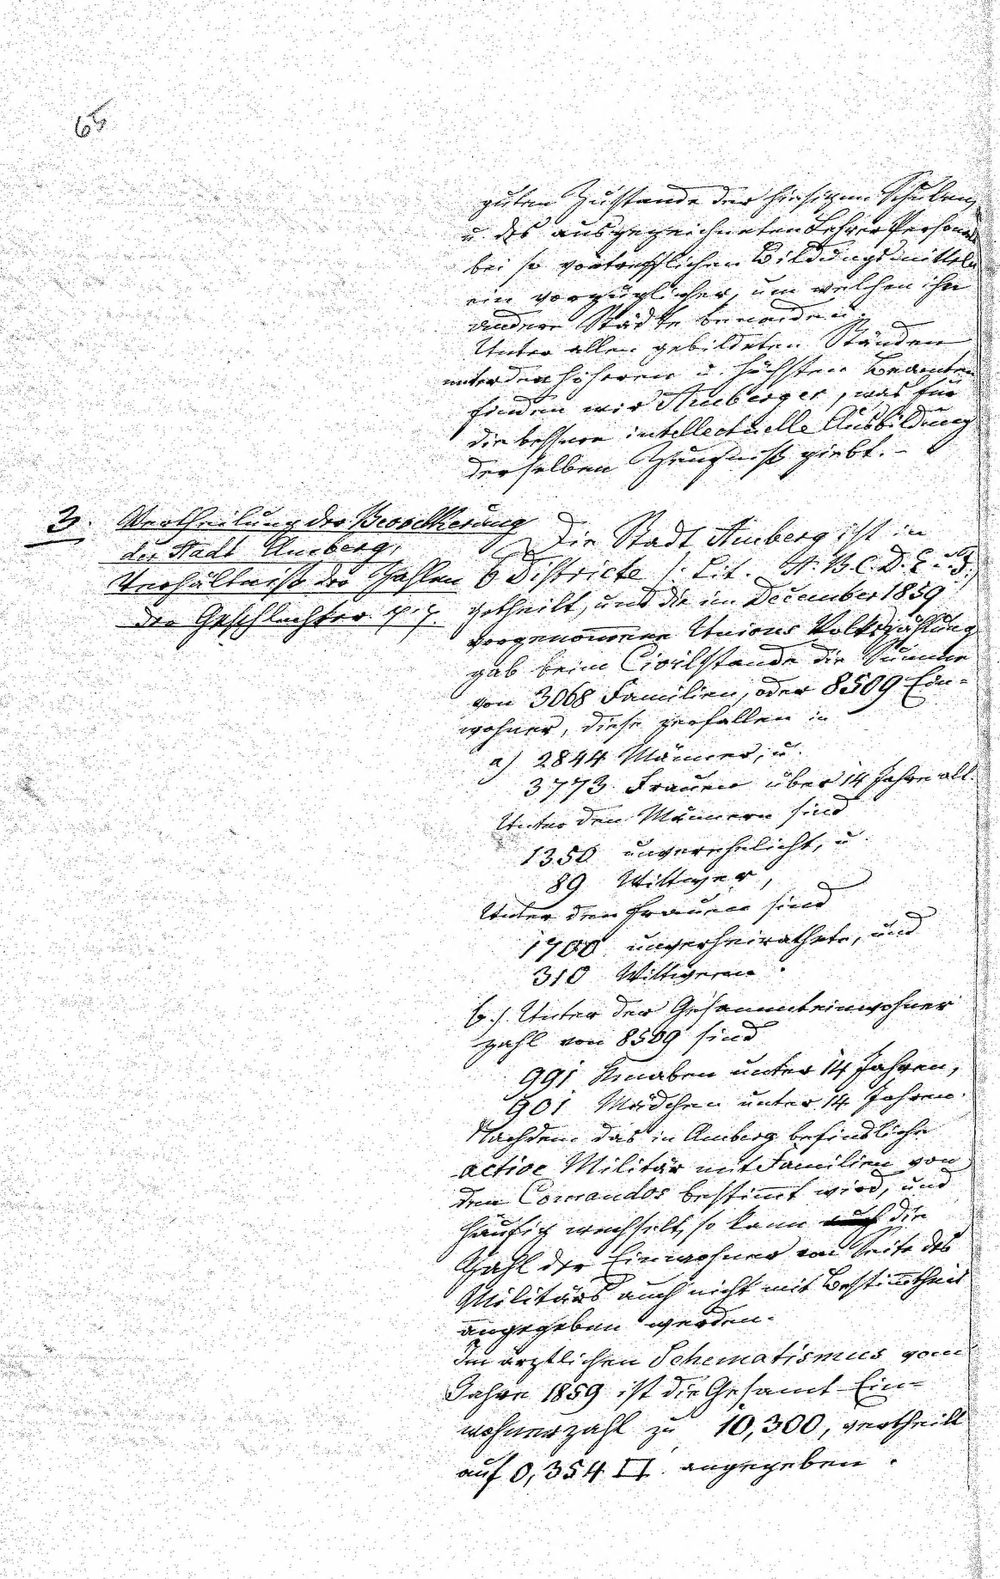 65
guten Zustande der hiesigen Schulen,
u. des ausgezeichneten Lehrer Personals
bei so vortrefflichen Bildungsmitteln
ein vorzüglicher, um welchen ihn
andere Städte beneiden.
Unter allen gebildeten Ständen
unter den höheren u. höchsten Beamten
finden wir Amberger, was für
die bessere intellectuelle Ausbildung
derselben Zeugniß giebt. -
3. Vertheilung der Bevölkerung
der Stadt Amberg,
Verhältniß der Zahlen
der Geschlechter p. p.
Die Stadt Amberg ist in
6 Districte /: Lit. A. B. C. D. E. u. F. :/
getheilt, und die im December 1859
vorgenommene Unions Volkszählung
gab beim Civilstande die Summe
von 3068 Familien, oder 8509 Ein=
wohner, diese zerfallen in
a) 2844 Männer, u.
3773 Frauen über 14 Jahre alt.
Unter den Männern sind
1350 unverehelicht, u.
89 Wittwer,
Unter den Frauen sind
1700 unverheirathete, und
310 Wittwen.
b.) Unter der Gesammteinwohner
zahl von 8509 sind
991 Knaben unter 14 Jahren,
901 Mädchen unter 14 Jahren.
Nachdem das in Amberg befindliche
active Militär mit Familien von
den Comandos bestimmt wird, und
häufig wechselt, so kann die
Zahl der Einwohner von Seite des
Militärs auch nicht mit Bestimmtheit
angegeben werden.
Im ärztlichen Schematismus vom
Jahre 1859 ist die Gesamt-Ein=
wohnerzahl zu 10,300, vertheilt
auf 0,354 □ angegeben.